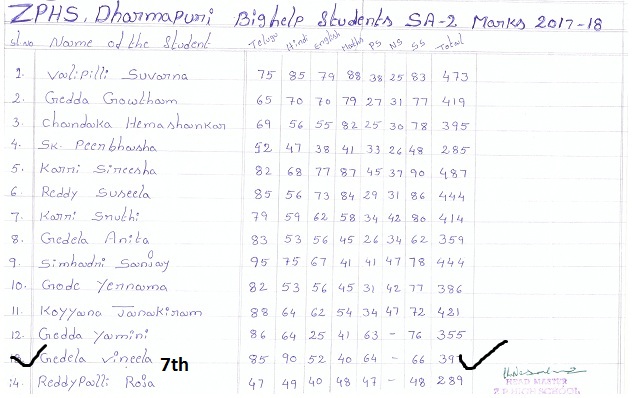 ZPHS, Dharmapuri Bighelp Students SA-2 Marks 2017-18
Sl.no Name of the Student Telugu Hindi English Maths PS NS SS Total
1. Valipilli Suvarna 75 85 79 88 38 25 83 473
2. Gedda Gowtham 65 70 70 79 27 31 77 419
3. Chandaka Hemashankar 69 56 55 82 25 30 78 395
4. Sk. Peerbhasha 52 47 38 41 33 26 48 285
5. Karri Sireesha 82 68 77 87 45 37 90 487
6. Reddy Suseela 85 56 73 84 29 31 86 444
7. Karri Sruthi 79 59 62 58 34 42 80 414
8. Gedela Anita 83 53 56 45 26 34 62 359
9. Simhadri Sanjay 95 75 67 41 41 47 78 444
10. Gode Yerrama 82 53 56 45 31 42 77 386
11. Koyyana Janakiram 88 64 62 54 34 47 72 421
12. Gedda Yamini 86 64 25 41 63 - 76 355
13. Gedela Vineela 7th 85 90 52 40 64 - 66 39
14. Reddypalli Roja 47 49 40 48 47 - 48 289
HEAD MASTER
Z.P.HIGH SCHOOL